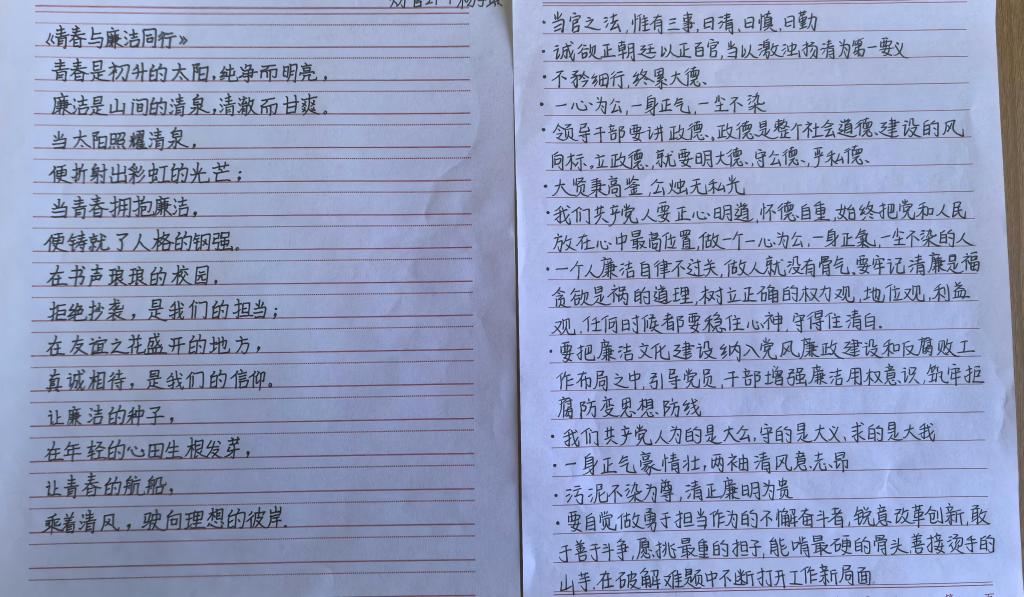 《青春与廉洁同行》
青春是初升的太阳,纯净而明亮,
廉洁是山间的清泉,清澈而甘爽。
当太阳照耀清泉,
便折射出彩虹的光芒;
当青春拥抱廉洁,
便铸就了人格的钢强。
在书声琅琅的校园,
拒绝抄袭,是我们的担当;
在友谊之花盛开的地方,
真诚相待,是我们的信仰。
让廉洁的种子,
在年轻的心田生根发芽,
让青春的航船,
乘着清风,驶向理想的彼岸.
·当官之法,惟有三事,日清,日慎,日勤
·诚欲正朝廷以正百官,当以激浊扬清为第一要义
·不矜细行,终累大德、
·一心为公,一身正气,一尘不染
·领导干部要讲政德、政德是整个社会道德、建设的风
向标。立政德、就要明大德、守公德、严私德、
·大贤秉高鉴,公烛无私光
·我们共产党人要正心明道,怀德自重,始终把党和人民
放在心中最高位置,做一个一心为公,一身正氣,一尘不染的人
·一个人廉洁自律不过关,做人就没有骨气,要牢记清廉是福
贪欲是祸的道理,树立正确的权力观,地位观,利益
观,任何时候都要稳住心神,守得住清白.
·要把廉洁文化建设纳入党风廉政建设和反腐败工
作布局之中,引导党员,干部增强廉洁用权意识,筑牢拒
腐防变思想防线
·我们共产党人为的是大公,守的是大义,求的是大我
·一身正气豪情壮,两袖清风意志昂
·污泥不染为尊,清正廉明为贵
·要自觉做勇于担当作为的不懈奋斗者,锐意改革创新,敢
于善于斗争,愿挑最重的担子,能啃最硬的骨头,善接烫手的
山芋.在破解难题中不断打开工作新局面